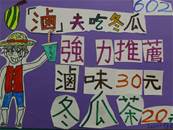 602
「滷」夫吃冬瓜
強力推薦
滷味30元
冬瓜茶20